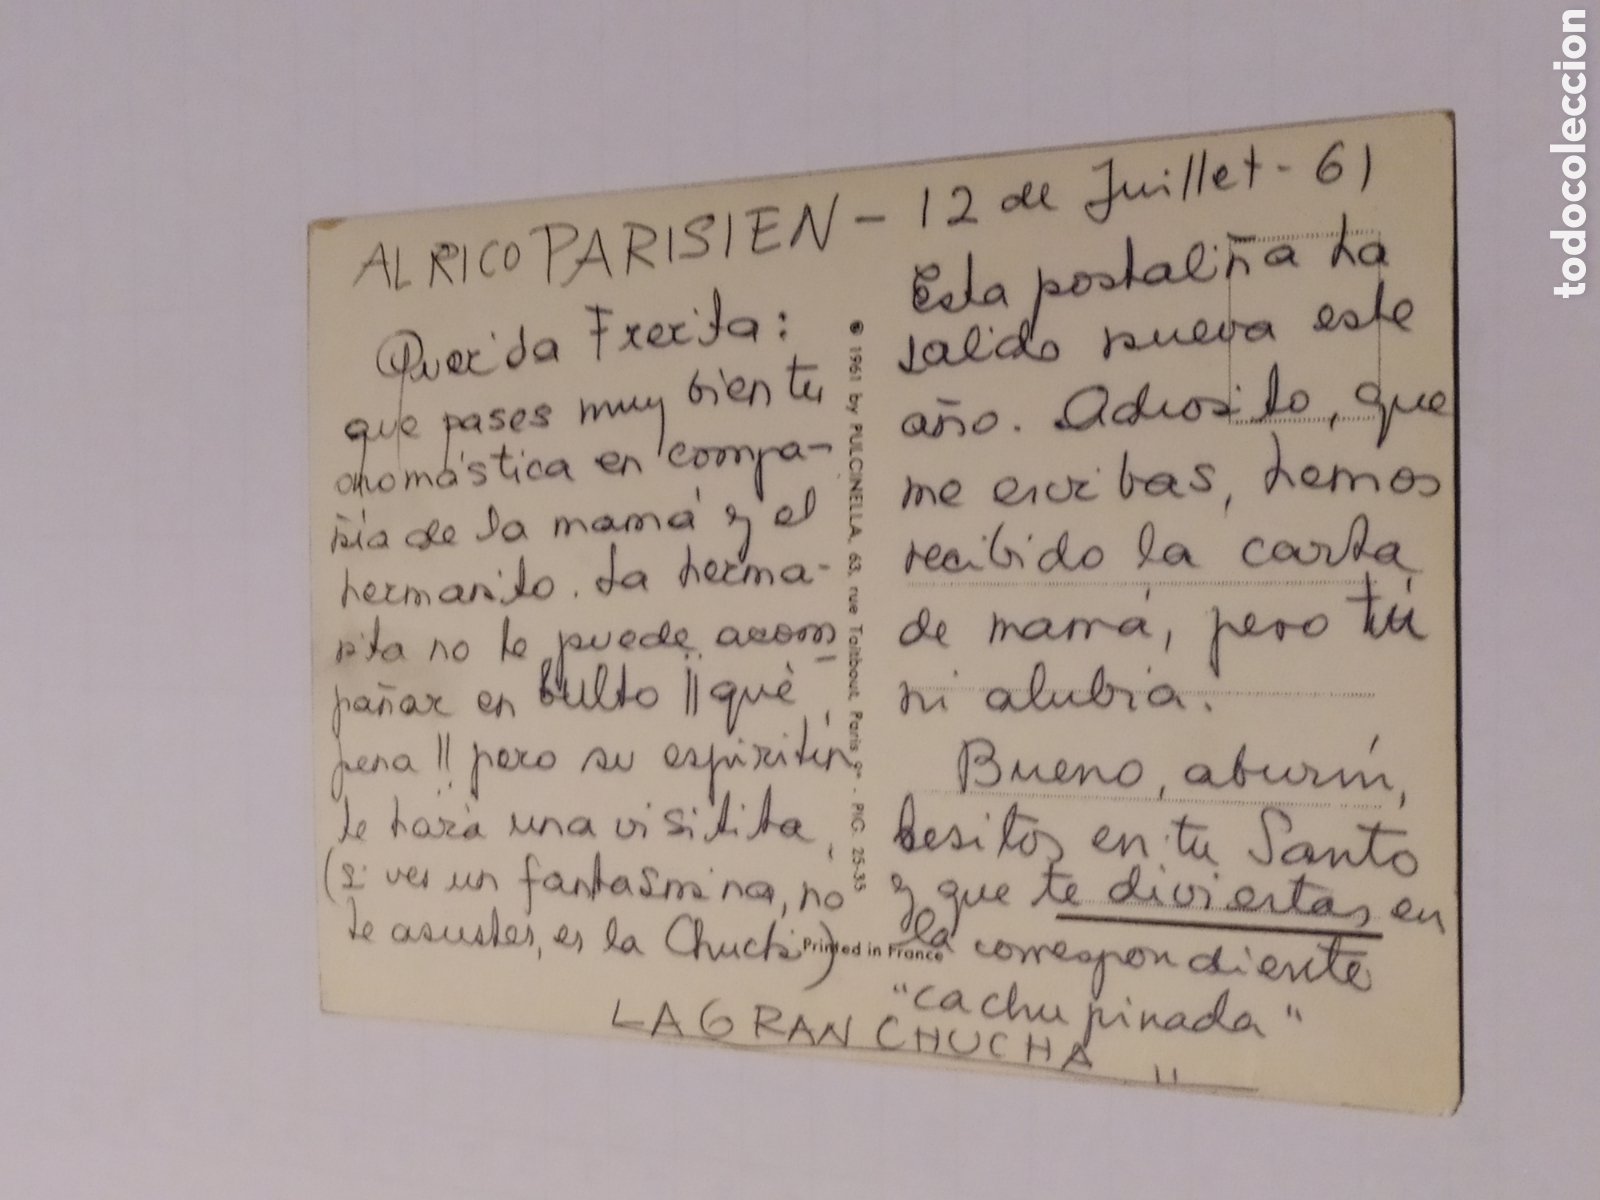 AL RICO PARISIEN - 12 de Juillet - 61
Querida Frerita:
que pases muy bien tu
onomástica en compa-
ñia de la mamá y el
hermanito. La herma-
nita no te puede acom
pañar en bulto ¡¡qué
pena!! pero su espiritín
te hará una visitita,
(si ves un fantasmina, no
te asustes, es la Chuchi)
Esta postaliña ha
salido nueva este
año. Adiosito, que
me escribas, hemos
recibido la carta
de mamá, pero tú
ni alubia.
Bueno, aburín,
besitos en tu Santo
y que te diviertas en
la correspondiente
"cachupinada"
LA GRAN CHUCHA
© 1961 by PULCINELLA, 63, rue Taitbout, Paris 9e - PIC. 25-35
Printed in France
todocoleccion